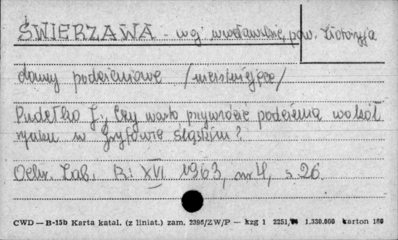 ŚWIERZAWA - woj. wrocławskie, pow. Złotoryja
domy podcieniowe /nieistniejące/
Pudełko J., Czy warto przywrócić podcienia wokół
rynku w Gryfowie Śląskim?
Ochr. Zab. R: XVI 1963, nr 4, s. 26.
CWD — B-15b Karta katal. (z liniat.) zam. 2395/ZW/P — kzg 1 2251, 1.330.500 karton 180